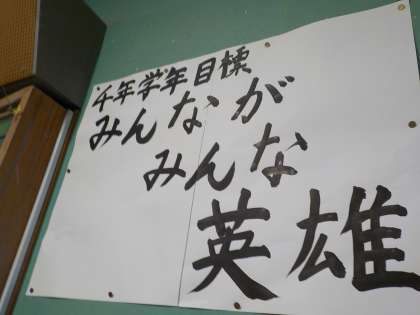 千年学年目標
みんなが
みんな
英雄